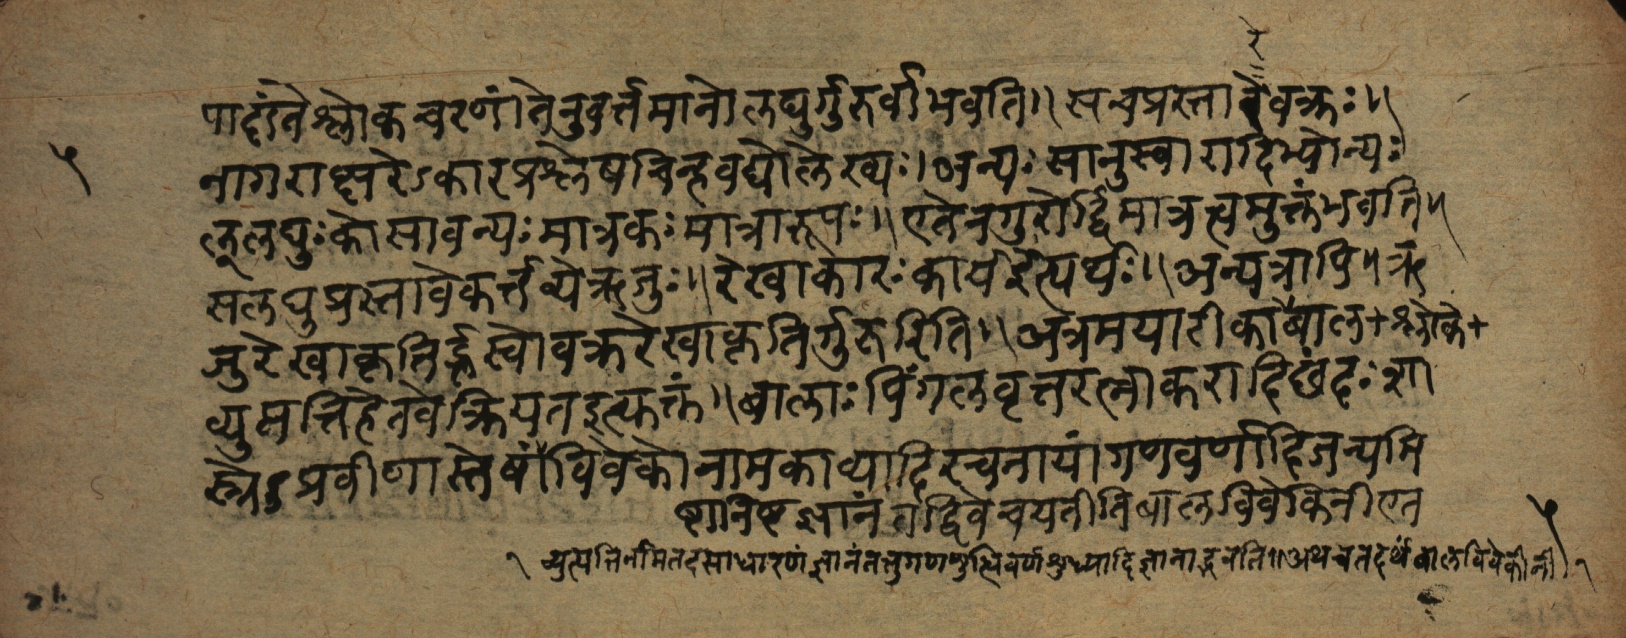 रे
पादांते श्लोकचरणांतेनुवर्त्तमानो लघुर्गुरुर्वा भवति॥ सच प्रस्तारे वक्रः॥
५
नागराक्षरेऽकारप्रश्लेषचिन्हवद्योलेख्यः। अन्यः सानुस्वारादिभ्योन्यः
लूलघुः कोसावन्यः मात्रकः मात्रारूपः॥ एतेनगुरोर्द्विमात्रत्वमुक्तं भवति॥
सलघुप्रस्तावेकर्त्तव्ये ऋजुः॥ रेखाकारः कार्य इत्यर्थः॥ अन्यत्रापि॥ ऋ
जुरेखाकृतिर्ह्रस्वो वक्ररेखाकृतिर्गुरूरिति॥ अत्रमयाटीका बाल + श्लोके +
व्युत्पत्तिहेतवेक्रियत इत्युक्तं॥ बालाः पिंगलवृत्तरत्नाकरादिछंदः शा
स्त्रेऽप्रवीणास्तेषां विवेको नामकाव्यादिरचनायां गणवर्णादिजन्यमि
ष्टानिष्टज्ञानं तद्विवेचयतीति बालविवेकिनी एत
५
१ व्युत्पत्तिर्नामितदसाधारणं ज्ञानं तत्तुगणशुद्धिवर्णशुध्यादिज्ञानाद्भवति॥ अथ च तदर्थं बालविवेकीनी १